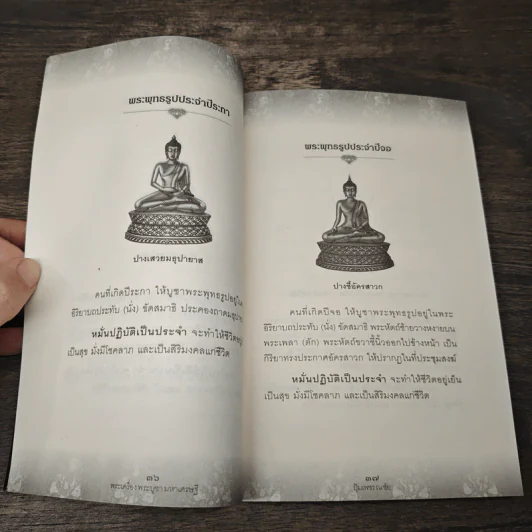 พระพุทธรูปประจำปีระกา
ปางเสวยมธุปายาส
คนที่เกิดปีระกา ให้บูชาพระพุทธรูปอยู่ใน
อิริยาบถประทับ (นั่ง) ขัดสมาธิ ประคองถาดมธุปา
หมั่นปฏิบัติเป็นประจำ จะทำให้ชีวิตอยู่
เป็นสุข มั่งมีโชคลาภ และเป็นสิริมงคลแก่ชีวิต
๓๖
พระเครื่องพระบูชามหาเศรษฐี
พระพุทธรูปประจำปีจอ
ปางชี้อัครสาวก
คนที่เกิดปีจอ ให้บูชาพระพุทธรูปอยู่ในพระ
อิริยาบถประทับ (นั่ง) ขัดสมาธิ พระหัตถ์ซ้ายวางหงายบน
พระเพลา (ตัก) พระหัตถ์ขวาชี้นิ้วออกไปข้างหน้า เป็น
กิริยาทรงประกาศอัครสาวก ให้ปรากฏในที่ประชุมสงฆ์
หมั่นปฏิบัติเป็นประจำ จะทำให้ชีวิตอยู่เย็น
เป็นสุข มั่งมีโชคลาภ และเป็นสิริมงคลแก่ชีวิต
๓๗